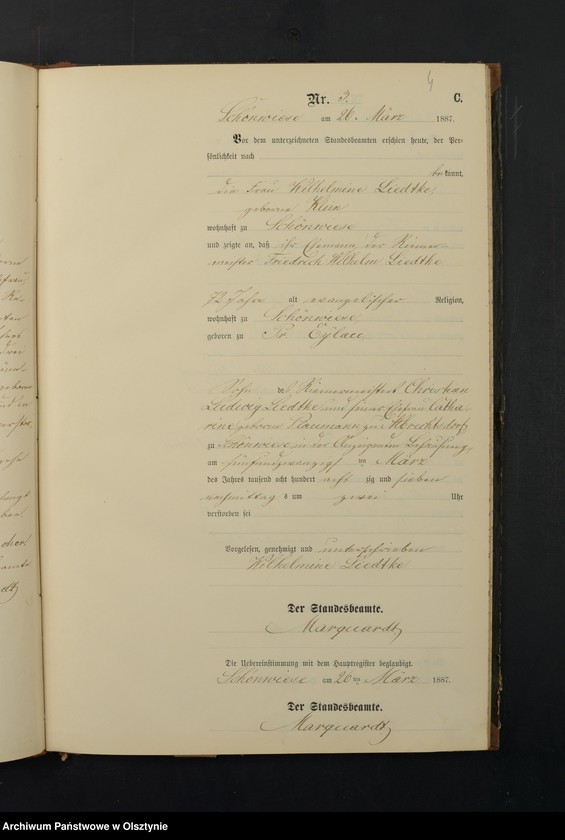 4
Nr. 3. C.
Schönwiese am 26. März 1887.
Vor dem unterzeichneten Standesbeamten erschien heute, der Per-
sönlichkeit nach
bekannt,
die Frau Wilhelmine Liedtke,
geborene Klein
wohnhaft zu Schönwiese
und zeigte an, daß ihr Ehemann, der Riemer-
meister Friedrich Wilhelm Liedtke
72 Jahre alt evangelischer Religion,
wohnhaft zu Schönwiese
geboren zu Pr. Eylau
Sohn des Riemermeisters Christian
Ludwig Liedtke und seiner Ehefrau Catha-
rine geborene zu Albrechtsdorf
zu Schönwiese in der Anzeigerin Behausung,
am fünfundzwanzigsten März
des Jahres tausend acht hundert acht zig und sieben
nachmittags um zwei Uhr
verstorben sei
Vorgelesen, genehmigt und unterschrieben
Wilhelmine Liedtke
Der Standesbeamte.
Marquardt
Die Uebereinstimmung mit dem Hauptregister beglaubigt.
Schönwiese am 26ten März 1887.
Der Standesbeamte.
Marquardt
Archiwum Państwowe w Olsztynie